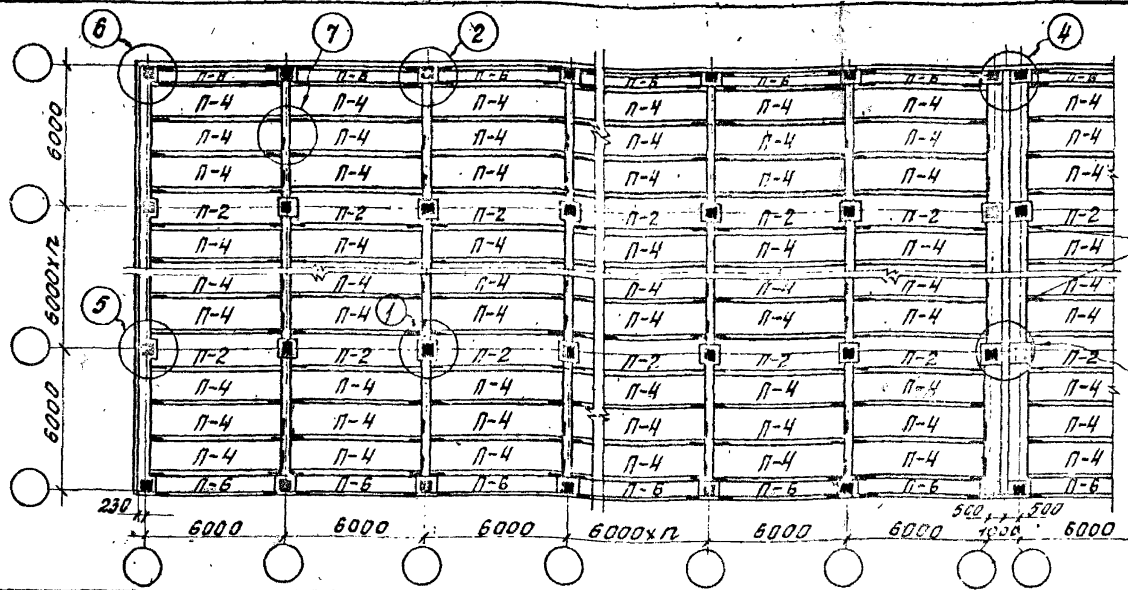 6 7 2 4
П-6 П-6 П-6 П-6 П-6 П-6 П-6 П-6
П-4 П-4 П-4 П-4 П-4 П-4 П-4
П-4 П-4 П-4 П-4 П-4 П-4 П-4
П-4 П-4 П-4 П-4 П-4 П-4 П-4
6000
П-2 П-2 П-2 П-2 П-2 П-2 П-2
П-4 П-4 П-4 П-4 П-4 П-4 П-4
6000хп
П-4 П-4 П-4 П-4 П-4 П-4 П-4
5
П-4 П-4 1 П-4 П-4 П-4 П-4 П-4
П-2 П-2 П-2 П-2 П-2 П-2 П-2
П-4 П-4 П-4 П-4 П-4 П-4 П-4
6000
П-4 П-4 П-4 П-4 П-4 П-4 П-4
П-4 П-4 П-4 П-4 П-4 П-4 П-4
П-6 П-6 П-6 П-6 П-6 П-6 П-6
230 500 500
6000 6000 6000 6000хп 6000 6000 1000 6000